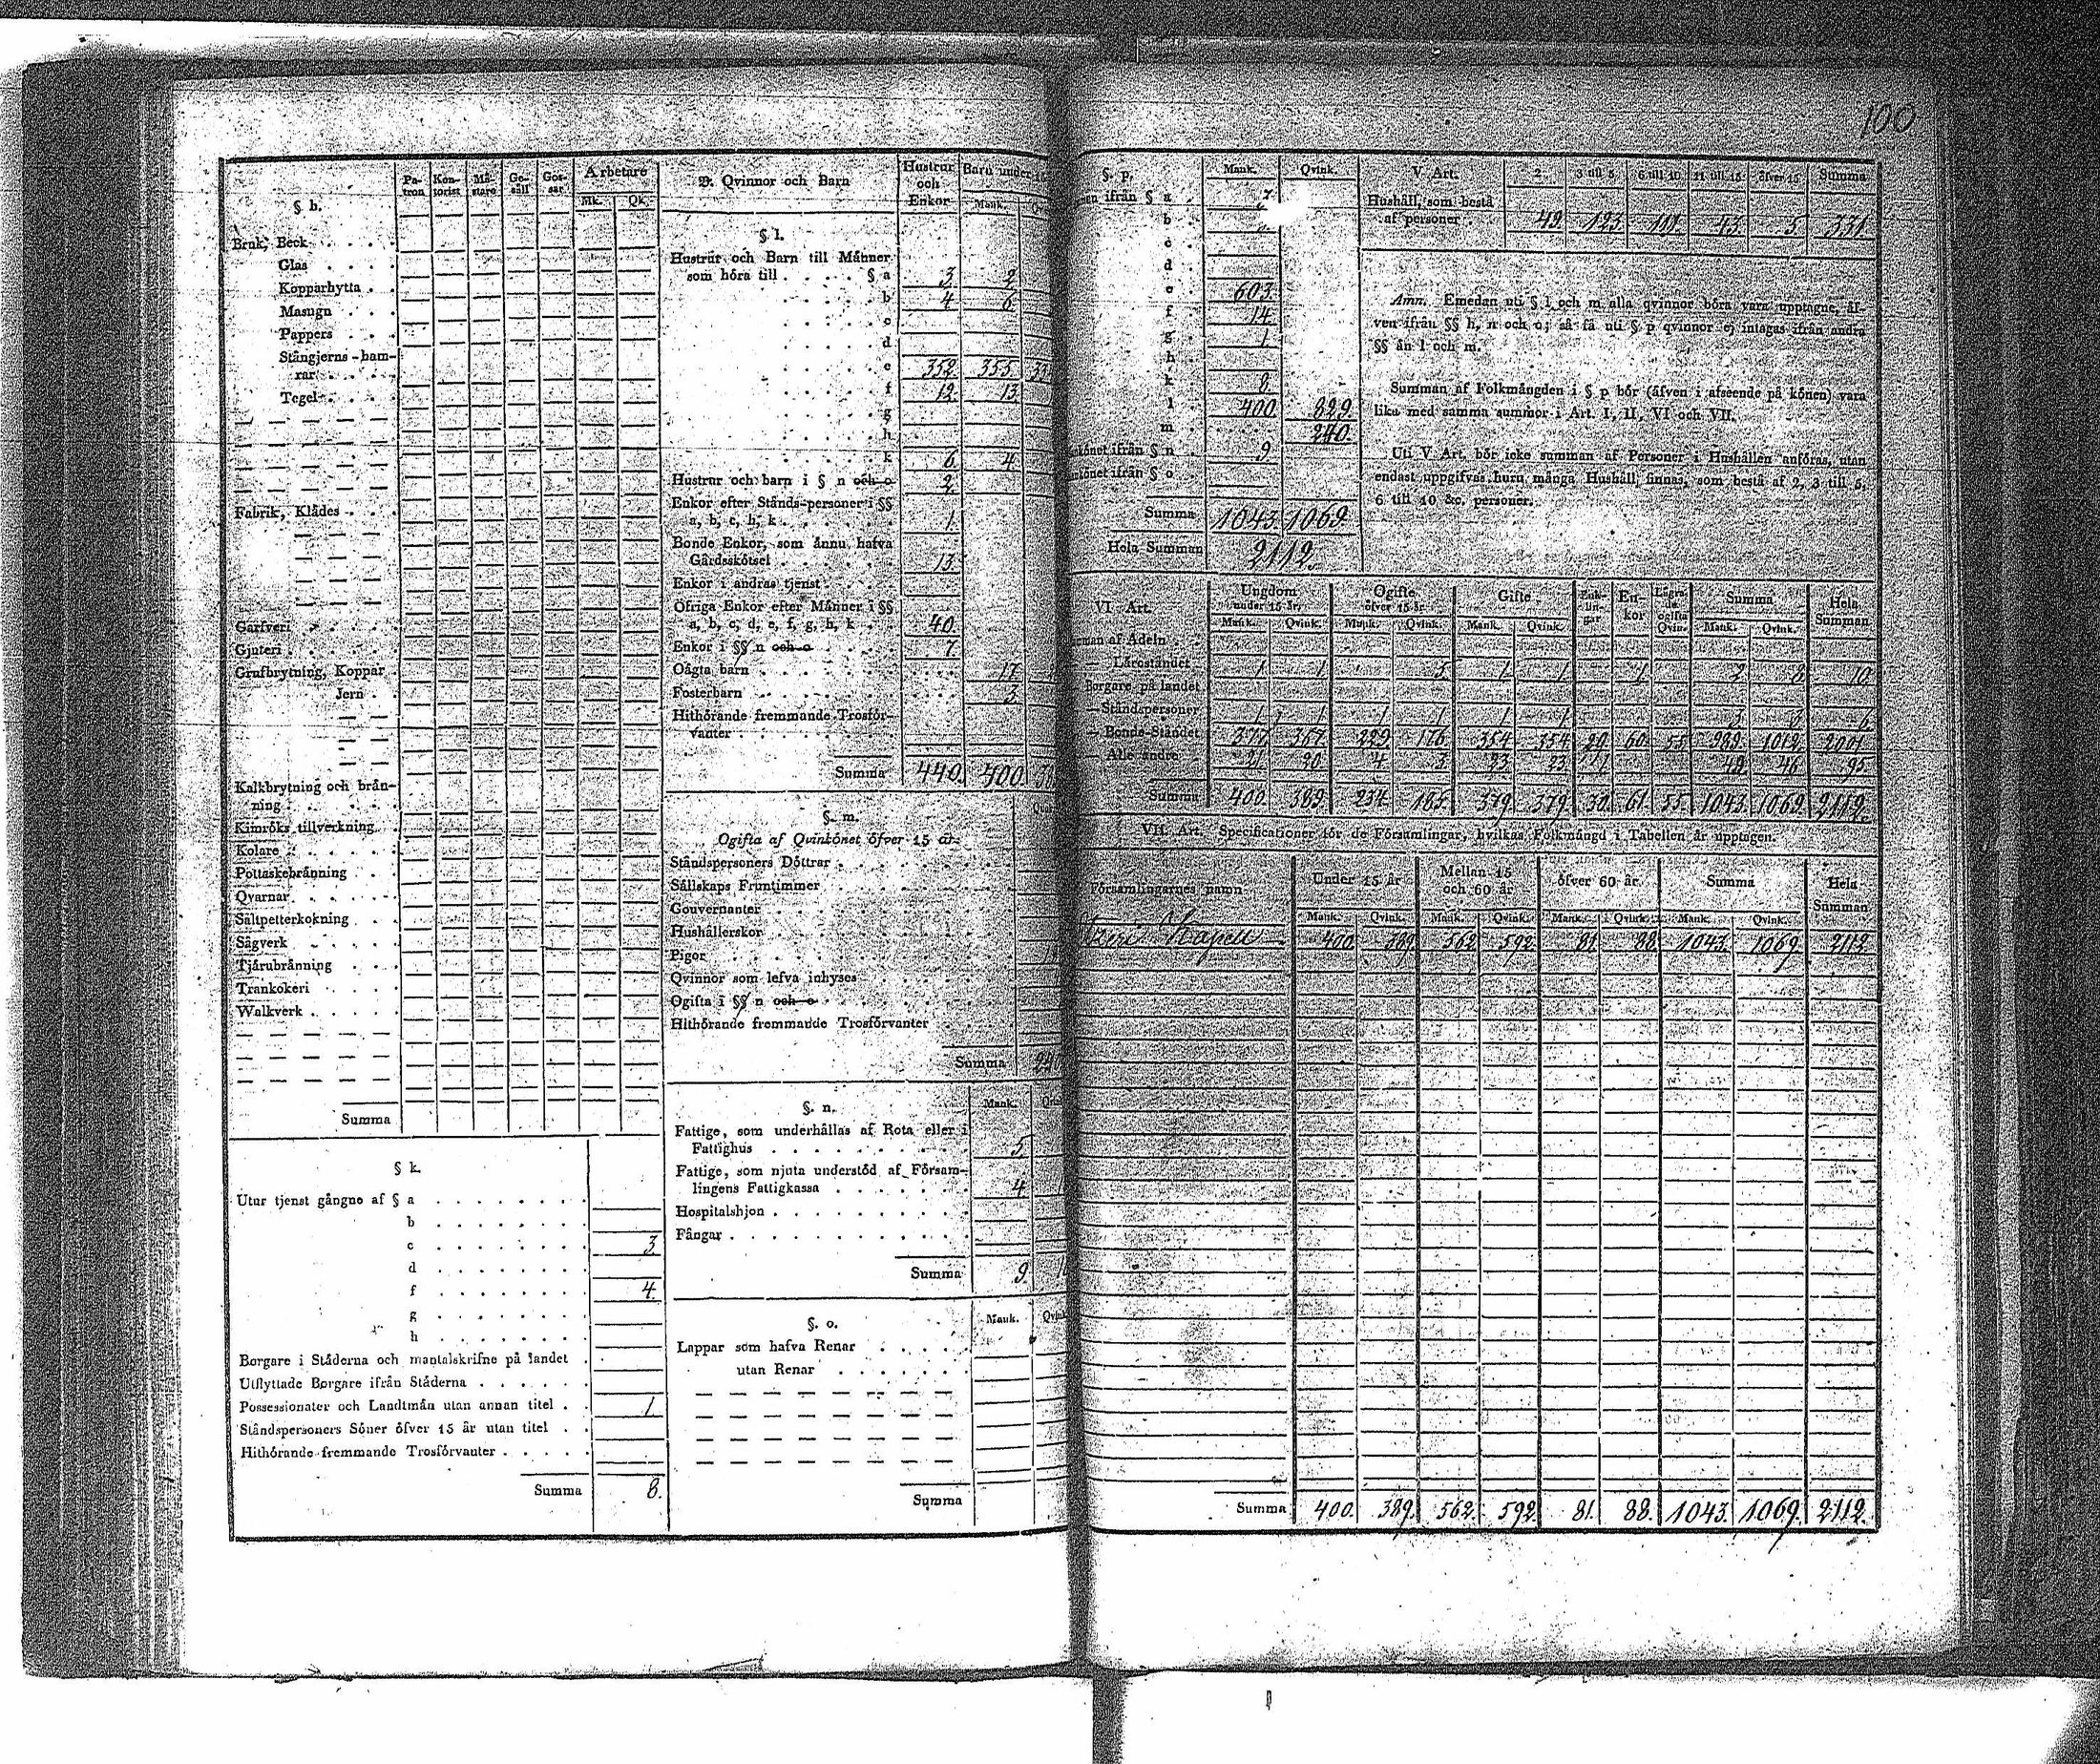 100
Pa- Kon- Mä- Ge- Gos- Arbetare
tron torist stare säll sar Mk. Qk.
§ h.
Bruk, Beck
Glas
Kopparhytta
Masugn
Pappers
Stångjerns-ham-
rar
Tegel
Fabrik, Klädes
Garfveri
Gjuteri
Grufbrytning, Koppar
Jern
Kalkbrytning och brän-
ning
Kimröks tillverkning
Kolare
Pottaskebränning
Qvarnar
Saltpetterkokning
Sågverk
Tjärubränning
Trankokeri
Walkverk
Summa
§ k.
Utur tjenst gångne af § a
b
c 3.
d
f 4.
g
h
Borgare i Städerna och mantalskrifne på landet
Utflyttade Borgare ifrån Städerna
Possessionater och Landtmän utan annan titel 1.
Ståndspersoners Söner öfver 15 år utan titel
Hithörande fremmande Trosförvanter
Summa 8.
D. Qvinnor och Barn Hustrur och Enkor Barn under 15
Mank.
§ l.
Hustrur och Barn till Männer
som höra till § a 3. 2.
b 4. 6.
c
d
e 352. 355.
f 12. 13.
g
h
k 6. 4.
Hustrur och barn i § n och o 2.
Enkor efter Stånds-personer i §§
a, b, c, h, k 1.
Bonde Enkor, som ännu hafva
Gårdsskötsel 13.
Enkor i andras tjenst
Öfriga Enkor efter Männer i §§
a, b, c, d, e, f, g, h, k 40.
Enkor i §§ n och o 7.
Oägta barn 17.
Fosterbarn 3.
Hithörande fremmande Trosför-
vanter
Summa 440. 400.
§. m.
Ogifta af Qvinkönet öfver 15 år
Ståndspersoners Döttrar
Sällskaps Fruntimmer
Gouvernanter
Hushållerskor
Pigor
Qvinnor som lefva inhyses
Ogifta i §§ n och o
Hithörande fremmande Trosförvanter
Summa 240
§. n. Mank.
Fattige, som underhållas af Rota eller i
Fattighus 5.
Fattige, som njuta understöd af Försam-
lingens Fattigkassa 4.
Hospitalshjon
Fångar
Summa 9.
§. o. Mank.
Lappar som hafva Renar
utan Renar
Summa
§. p. Mank. Qvink.
ifrån § a
b
c
d
e 603.
f 14.
g 1.
h
k 8.
l 400 829.
m 240.
könet ifrån § n 9.
könet ifrån § o
Summa 1043. 1069.
Hela Summan 2112.
V. Art. 2 3 till 5 6 till 10 11 till 15 öfver 15 Summa
Hushåll, som bestå
af personer 49. 123. 43. 5. 331.
Anm. Emedan uti § l och m alla qvinnor böra vara upptagne, äf-
ven ifrån §§ h, n och o; så få uti § p qvinnor ej intagas ifrån andra
§§ än l och m.
Summan af Folkmängden i § p bör (äfven i afseende på könen) vara
lika med samma summor i Art. I, II, VI och VII.
Uti V Art. bör icke summan af Personer i Hushållen anföras, utan
endast uppgifvas huru många Hushåll finnas, som bestå af 2, 3 till 5,
6 till 10 &c. personer.
VI. Art. Ungdom under 15 år. Ogifte öfver 15 år Gifte Enk-lin-gar En-kor Lägra-de ogifta Qvin. Summa Hela Summan
Mank. Qvink. Mank. Qvink. Mank. Qvink. Mank. Qvink.
man af Adeln
— Läroståndet 1. 1. 5. 1. 1. 1. 2. 8. 10.
Borgare på landet
— Ståndspersoner 1. 1. 1. 1. 1. 1. 3. 3. 6.
— Bonde-Ståndet 377. 367. 229. 176. 354. 354. 29. 60. 55. 989. 1012. 2001.
— Alle andre 21. 20. 4. 3. 23. 23. 1. 49. 46. 95.
Summa 400. 389. 234. 185. 379. 379. 30. 61. 55. 1043. 1069. 2112.
VII. Art. Specificationer för de Församlingar, hvilkas Folkmängd i Tabellen är upptagen.
Församlingarnes namn Under 15 år Mellan 15 och 60 år öfver 60 år Summa Hela Summan
Mank. Qvink. Mank. Qvink. Mank. Qvink. Mank. Qvink.
Kapell 400. 389. 562. 592. 81. 88. 1043. 1069. 2112.
Summa 400. 389. 562. 592. 81. 88. 1043. 1069. 2112.